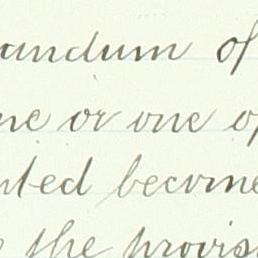 andum of
ne or one of
nted become
the provis